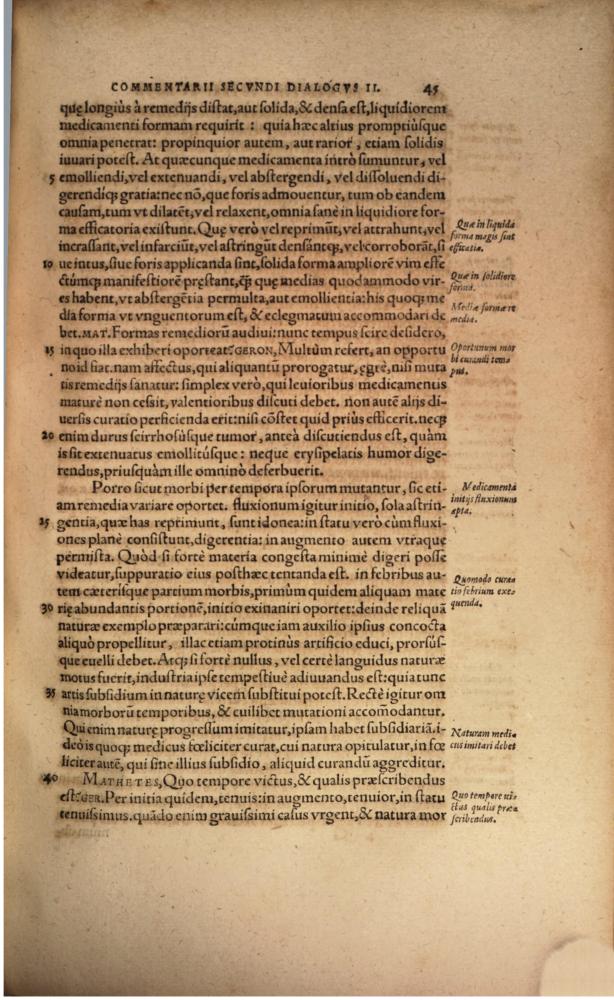 COMMENTARII SECVNDI DIALOGVS II. 45
que longiùs à remedijs distat, aut solida, & densa est, liquidiorem
medicamenti formam requirit : quia hæc altius promptiúsque
omnia penetrat: propinquior autem, aut rarior, etiam solidis
iuuari potest. At quæcunque medicamenta intrò sumuntur, vel
5 emolliendi, vel extenuandi, vel abstergendi, vel dissoluendi di-
gerendiq; gratia: nec nõ, que foris admouentur, tum ob eandem
causam, tum vt dilatẽt, vel relaxent, omnia sanè in liquidiore for-
ma efficatoria existunt. Quę verò vel reprimũt, vel attrahunt, vel
Quæ in liquida
incrassant, vel infarciũt, vel astringũt densántq;, vel corroborãt, si
forma magis sint
efficatia.
10 ue intus, siue foris applicanda sint, solida forma ampliorẽ vim effe
ctũmq; manifestiorẽ pręstant, q̃ꝫ quę medias quodammodo vir-
Quæ in solidiore
es habent, vt abstergẽtia permulta, aut emollientia: his quoq; me
forma.
dia forma vt vnguentorum est, & eclegmatum accommodari de
Mediæ formæ re
bet. MAT. Formas remediorũ audiui: nunc tempus scire desidero,
media.
15 in quo illa exhiberi oporteat. GERON, Multùm refert, an opportu
Oportunum mor
no id fiat. nam affectus, qui aliquantũ prorogatur, ęgrè, nisi muta
bi curandi tem⸗
tis remedijs sanatur: simplex verò, qui leuioribus medicamentis
pus.
maturè non cessit, valentioribus discuti debet. non autẽ alijs di-
uersis curatio perficienda erit: nisi cõstet quid priùs effecerit. neq;
20 enim durus scirrhosúsque tumor, anteà discutiendus est, quàm
is sit extenuatus emollitúsque : neque erysipelatis humor dige-
rendus, priusquàm ille omninò deferbuerit.
Porro sicut morbi per tempora ipsorum mutantur, sic eti-
Medicamenta
am remedia variare oportet. fluxionum igitur initio, sola astrin-
initijs fluxionum
25 gentia, quæ has reprimunt, sunt idonea: in statu verò cùm fluxi-
apta.
ones planè consistunt, digerentia: in augmento autem vtraque
permista. Quòd si fortè materia congesta minimè digeri posse
videatur, suppuratio eius posthæc tentanda est. in febribus au-
Quomodo cura⸗
tem cæterísque partium morbis, primùm quidem aliquam mate
tio febrium exe⸗
30 rię abundantis portionẽ, initio exinaniri oportet: deinde reliquã
quenda.
naturæ exemplo præparari: cúmque iam auxilio ipsius concocta
aliquò propellitur, illac etiam protinùs artificio educi, prorsús-
que euelli debet. Atq; si fortè nullus, vel certè languidus naturæ
motus fuerit, industria ipse tempestiuè adiuuandus est: quia tunc
35 artis subsidium in naturę vicem substitui potest. Rectè igitur om
nia morborũ temporibus, & cuilibet mutationi accomõdantur.
Qui enim naturę progressum imitatur, ipsam habet subsidiariã. i-
Naturam medi⸗
deò is quoq; medicus fœliciter curat, cui natura opitulatur, in fœ
cus imitari debet
liciter autẽ, qui sine illius subsidio, aliquid curandũ aggreditur.
40 MATHETES, Quo tempore victus, & qualis præscribendus
est? GER. Per initia quidem, tenuis: in augmento, tenuior, in statu
Quo tempore ui⸗
ctus qualis præ⸗
tenuissimus. quãdo enim grauissimi casus vrgent, & natura mor
scribendus.